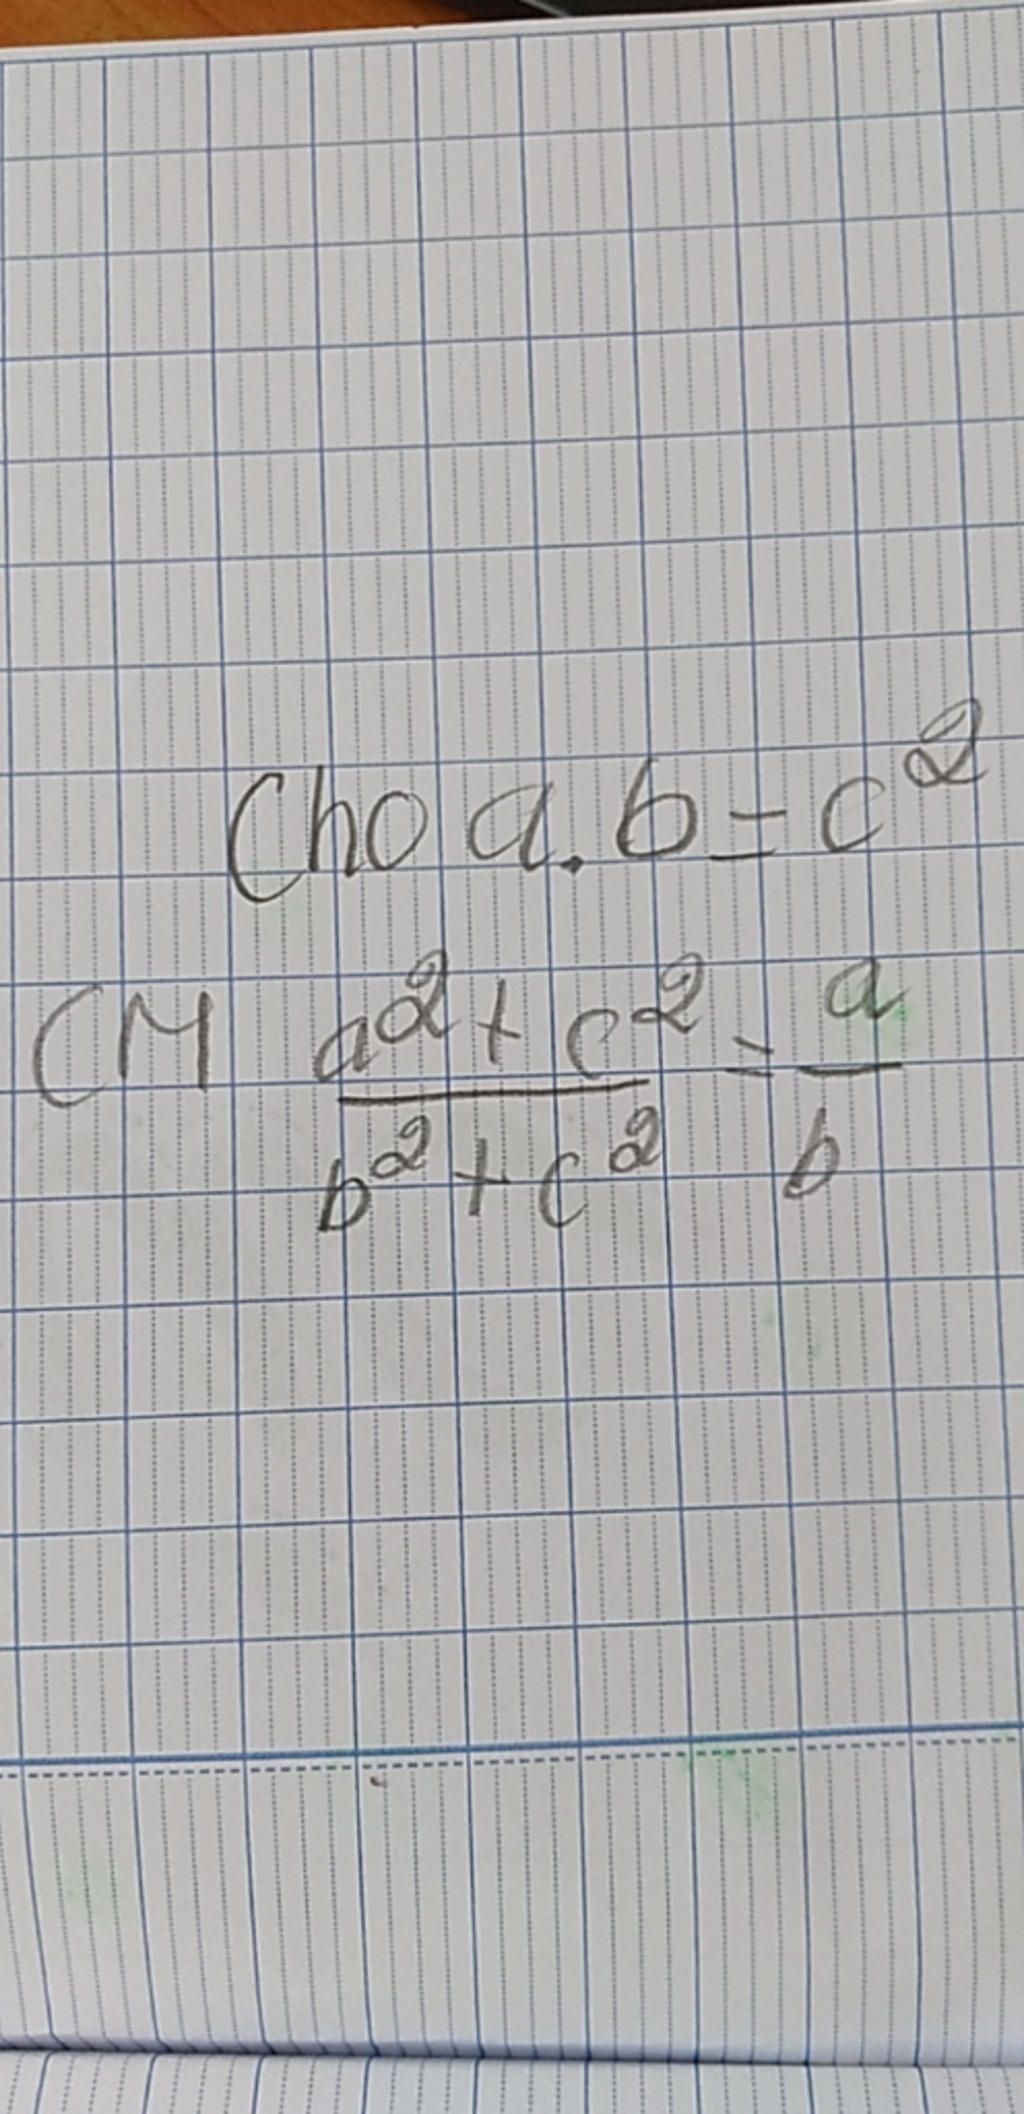 Cho a.b=c²
CM a²+c²/b²+c² = a/b